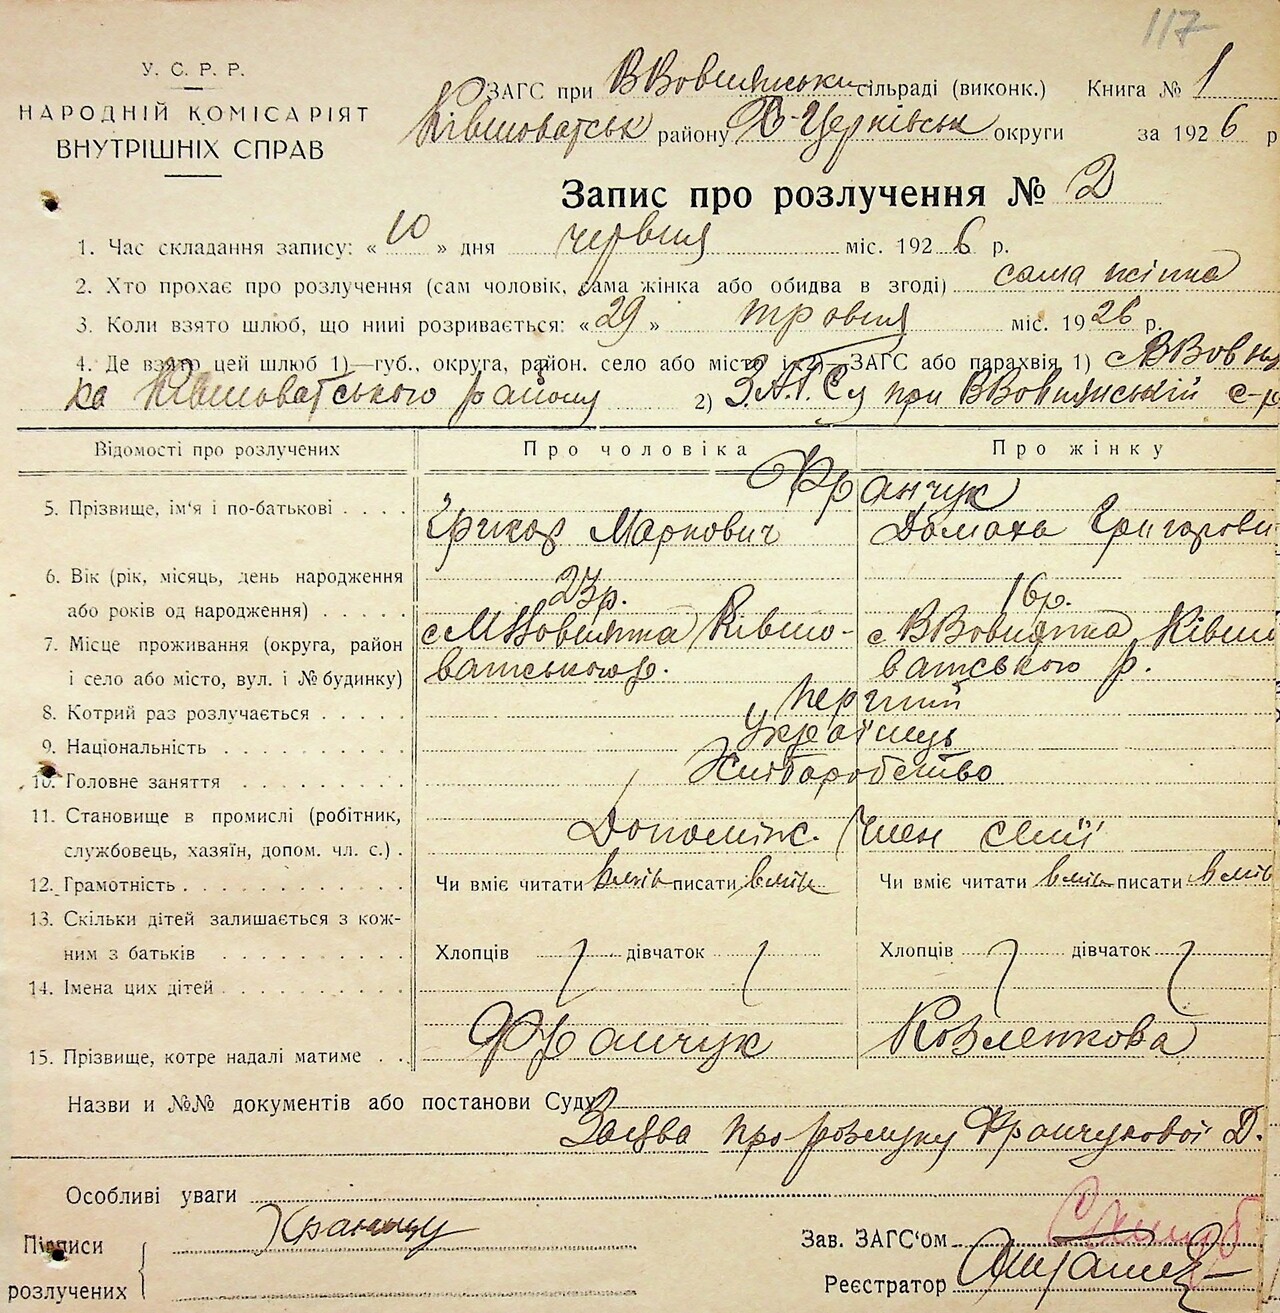 117
У. С. Р. Р.
НАРОДНІЙ КОМІСАРІЯТ
ВНУТРІШНІХ СПРАВ
ЗАГС при ВВовнянськи сільраді (виконк.) Книга № 1
Ківшоватськ району Б-Церківськ округи за 1926 р
Запис про розлучення № 2
1. Час складання запису: « 10 » дня червня міс. 1926 р.
2. Хто прохає про розлучення (сам чоловік, сама жінка або обидва в згоді) сама жінка
3. Коли взято шлюб, що нині розривається: « 29 » тровня міс. 1926 р.
4. Де взято цей шлюб 1)—губ., округа, район, село або місто і 2)—ЗАГС або парахвія 1) с ВВовня
ка Ківшоватського району 2) З.А.Г.Су при ВВовнянській с-р
Відомості про розлучених Про чоловіка Про жінку
5. Прізвище, ім'я і по-батькові Франчук
Григор Маркович Домаха Григорови
6. Вік (рік, місяць, день народження
або років од народження) 23р. 16р.
7. Місце проживання (округа, район с МВовнятка Ківшо- с ВВовнятка Ківшо
і село або місто, вул. і № будинку) ватського р. ватського р.
8. Котрий раз розлучається перший
9. Національність Українець
10. Головне заняття Хлібаробство
11. Становище в промислі (робітник,
службовець, хазяїн, допом. чл. с.) Допоміж. член семії
12. Грамотність Чи вміє читати вмів писати вмів Чи вміє читати вмів писати вмів
13. Скільки дітей залишається з кож-
ним з батьків Хлопців дівчаток Хлопців дівчаток
14. Імена цих дітей
15. Прізвище, котре надалі матиме Франчук Козленкова
Назви и №№ документів або постанови Суду
Заява про розлуку Франчукової Д.
Особливі уваги
Підписи
розлучених
Зав. ЗАГС'ом
Реєстратор